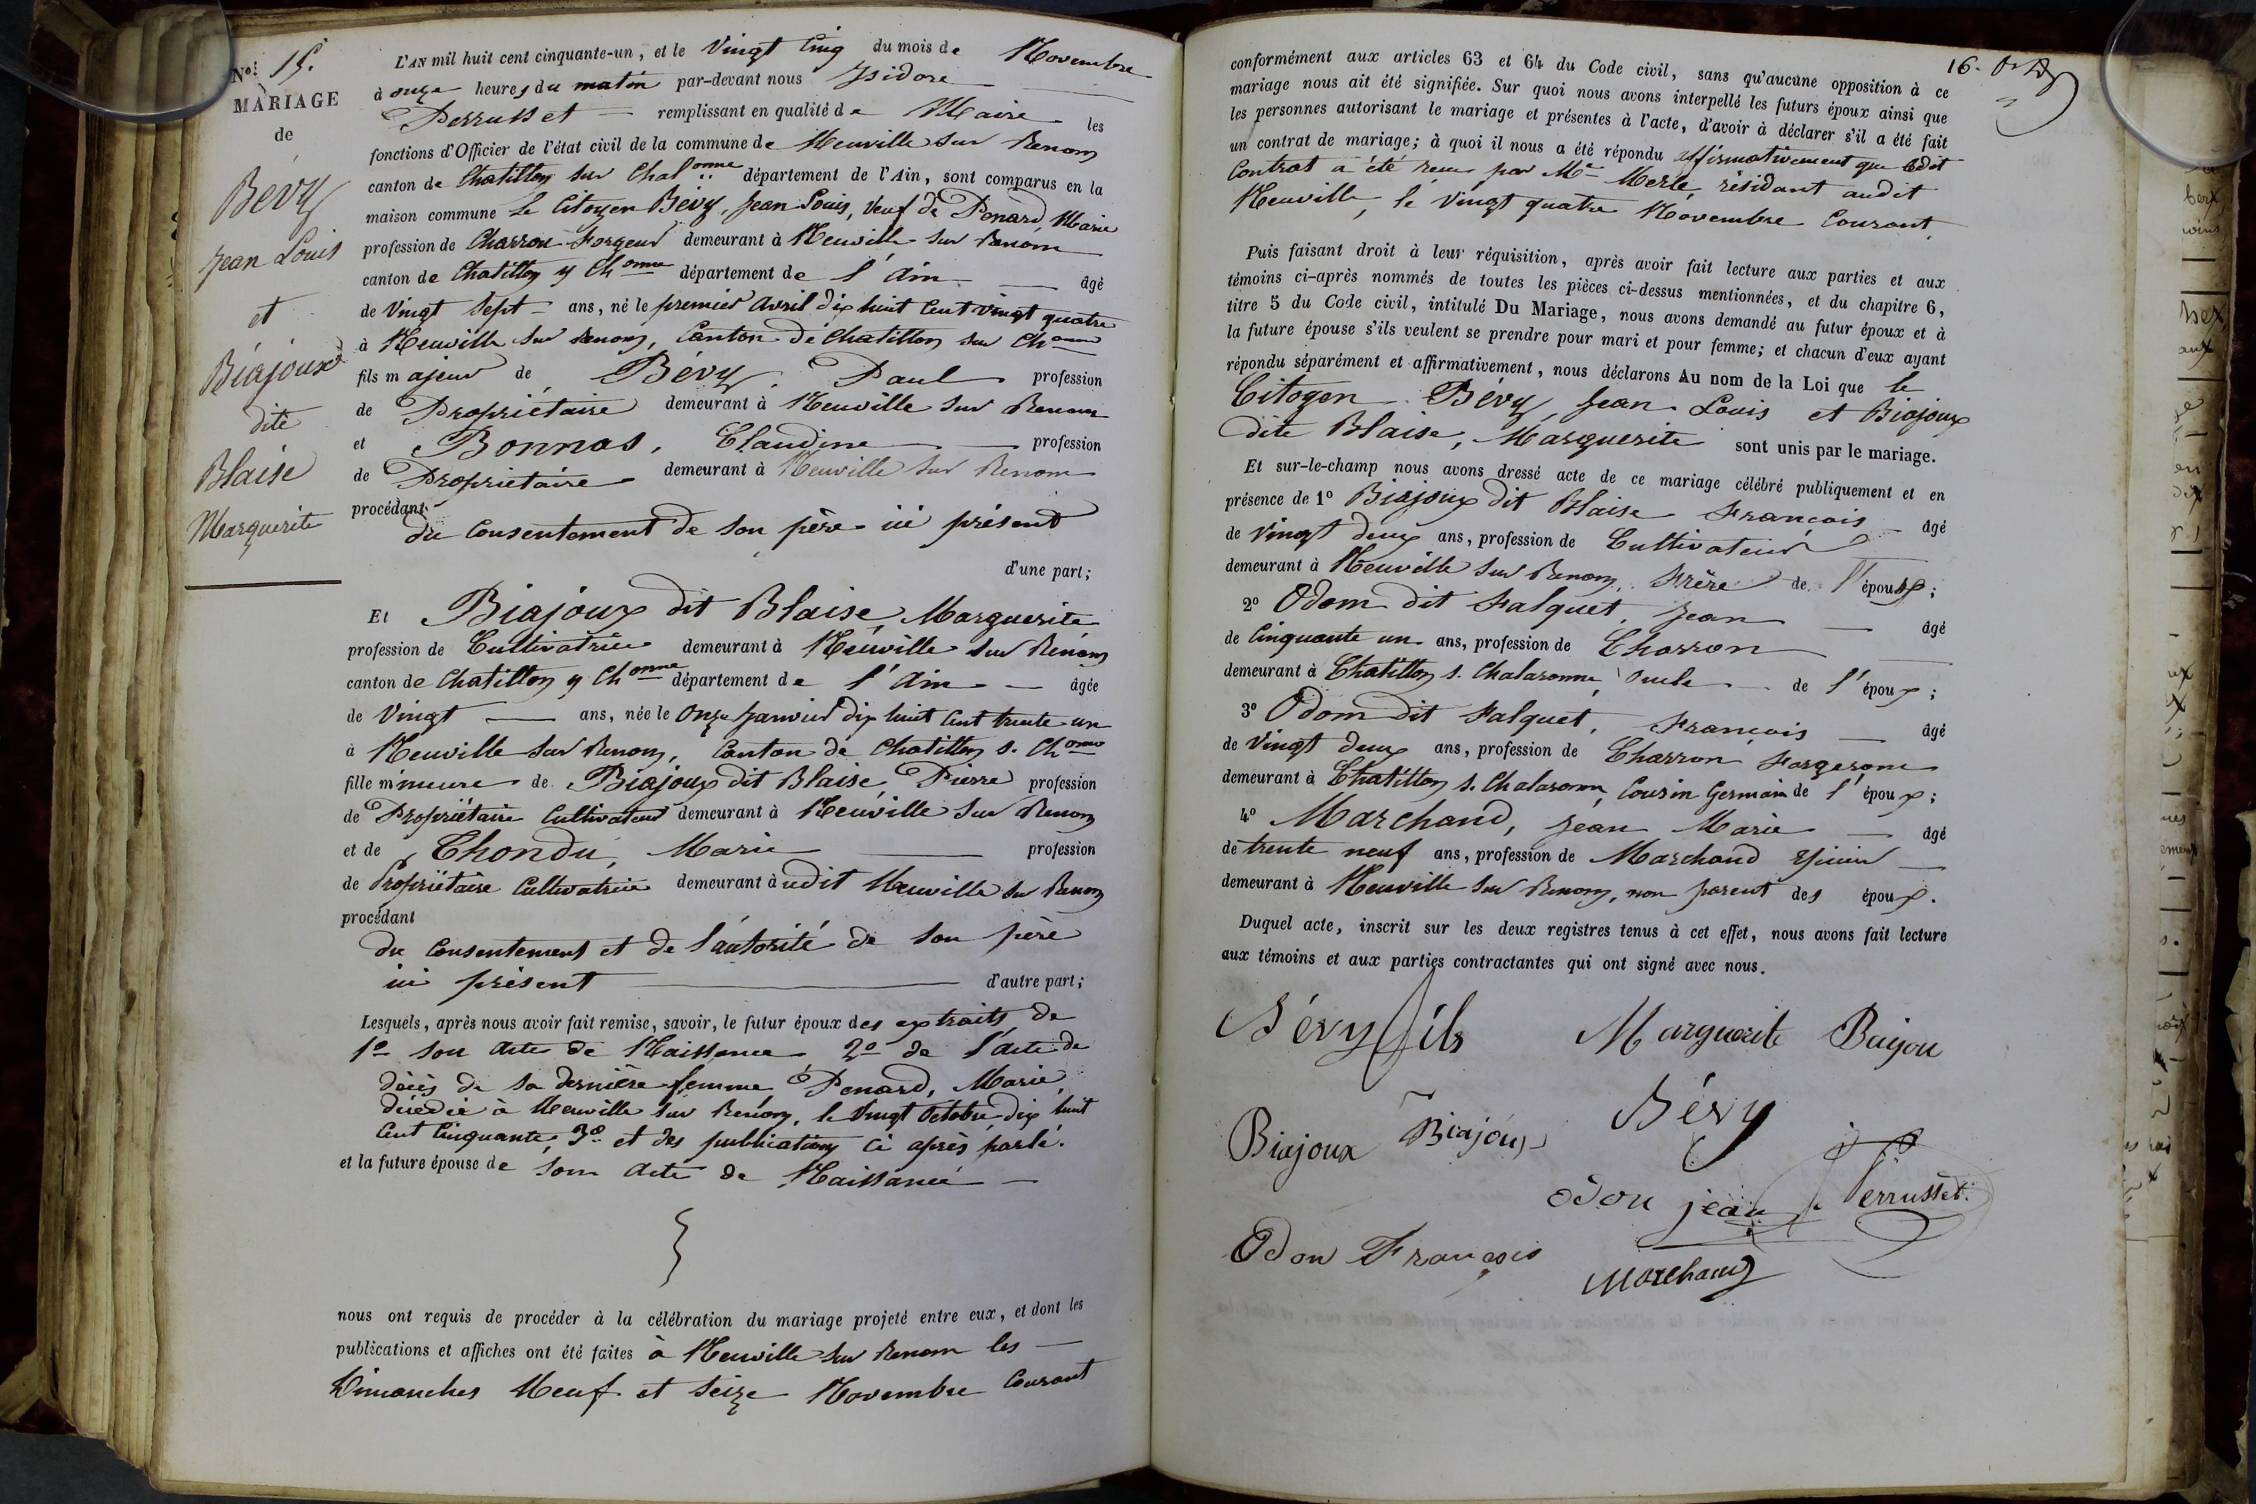 Nos 15.
MARIAGE
de
Bévy
Jean Louis
et
Biajoux
dite
Blaise
Marguerite
L'AN mil huit cent cinquante-un, et le Vingt Cinq du mois de Novembre
à onze heures du matin par-devant nous Isidore
Perrusset remplissant en qualité de Maire les
fonctions d'Officier de l'état civil de la commune de Neuville sur Renom
canton de Chatillon sur Chalonne département de l'Ain, sont comparus en la
maison commune Le Citoyen Bévy, Jean Louis, veuf de Penard, Marie
profession de Charron Forgeur demeurant à Neuville sur Renom
canton de Chatillon s Chonne département de l'Ain âgé
de Vingt Sept ans, né le premier Avril dix huit Cent vingt quatre
à Neuville sur Renom, Canton de Chatillon sur Chonne
fils majeur de Bévy, Paul profession
de Propriétaire demeurant à Neuville sur Renom
et Bonnas, Claudine profession
de Propriétaire demeurant à Neuville sur Renom
procédant
du Consentement de son père ici présent
d'une part;
Et Biajoux dit Blaise, Marguerite
profession de Cultivatrice demeurant à Neuville sur Renom
canton de Chatillon s Chonne département de l'Ain âgée
de Vingt ans, née le Onze Janvier dix huit Cent trente un
à Neuville sur Renom, Canton de Chatillon s. Chonne
fille mineure de Biajoux dit Blaise, Pierre profession
de Propriétaire Cultivateur demeurant à Neuville sur Renom
et de Chondu, Marie profession
de Propriétaire Cultivatrice demeurant àudit Neuville sur Renom
procédant
du Consentement et de l'autorité de son père
ici présent d'autre part;
Lesquels, après nous avoir fait remise, savoir, le futur époux des extraits de
1o son Acte de Naissance 2o de l'acte de
décès de sa dernière femme Penard, Marie,
décédée à Neuville sur Renom, le Vingt Octobre dix huit
Cent Cinquante, 3o et des publications Ci après parlé.
et la future épouse de son Acte de Naissance
nous ont requis de procéder à la célébration du mariage projeté entre eux, et dont les
publications et affiches ont été faites à Neuville sur Renom les
Dimanches Neuf et Seize Novembre Courant
16.
conformément aux articles 63 et 64 du Code civil, sans qu'aucune opposition à ce
mariage nous ait été signifiée. Sur quoi nous avons interpellé les futurs époux ainsi que
les personnes autorisant le mariage et présentes à l'acte, d'avoir à déclarer s'il a été fait
un contrat de mariage; à quoi il nous a été répondu affirmativement que ledit
Contrat a été reçu par Me Merle résidant audit
Neuville, le Vingt quatre Novembre Courant
Puis faisant droit à leur réquisition, après avoir fait lecture aux parties et aux
témoins ci-après nommés de toutes les pièces ci-dessus mentionnées, et du chapitre 6,
titre 5 du Code civil, intitulé Du Mariage, nous avons demandé au futur époux et à
la future épouse s'ils veulent se prendre pour mari et pour femme; et chacun d'eux ayant
répondu séparément et affirmativement, nous déclarons Au nom de la Loi que le
Citoyen Bévy, Jean Louis et Biajoux
dite Blaise, Marguerite sont unis par le mariage.
Et sur-le-champ nous avons dressé acte de ce mariage célébré publiquement et en
présence de 1o Biajoux dit Blaise François âgé
de Vingt deux ans, profession de Cultivateur
demeurant à Neuville sur Renom, Frère de l'épouse;
2o Odom dit Falquet, Jean âgé
de Cinquante un ans, profession de Charron
demeurant à Chatillon s. Chalaronne, oncle de l'époux;
3o Odom dit Falquet, François âgé
de Vingt deux ans, profession de Charron Forgeron
demeurant à Chatillon s. Chalaronne, Cousin Germain de l'époux;
4o Marchand, Jean Marie âgé
de trente neuf ans, profession de Marchand Epicier
demeurant à Neuville sur Renom, non parent des époux.
Duquel acte, inscrit sur les deux registres tenus à cet effet, nous avons fait lecture
aux témoins et aux parties contractantes qui ont signé avec nous.
Bévy fils Marguerite Baijou
Biajoux Biajoux Bévy
odon jean Perrusset
Odon François
Marchand